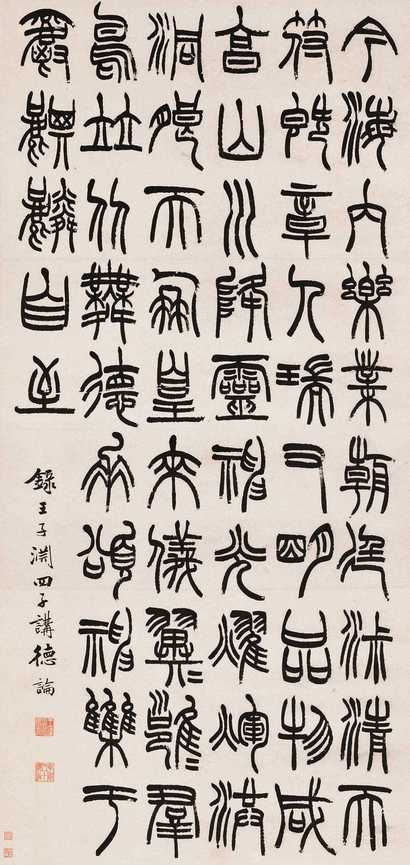 今海內樂業朝廷淑清天
符既章人瑞又明品物咸
亨山川降靈神光燿煇洪
洞朗天鳳皇來儀翼翼邕邕群
鳥竝从舞德垂頌神
麒麟自至
錄王子淵四子講德論